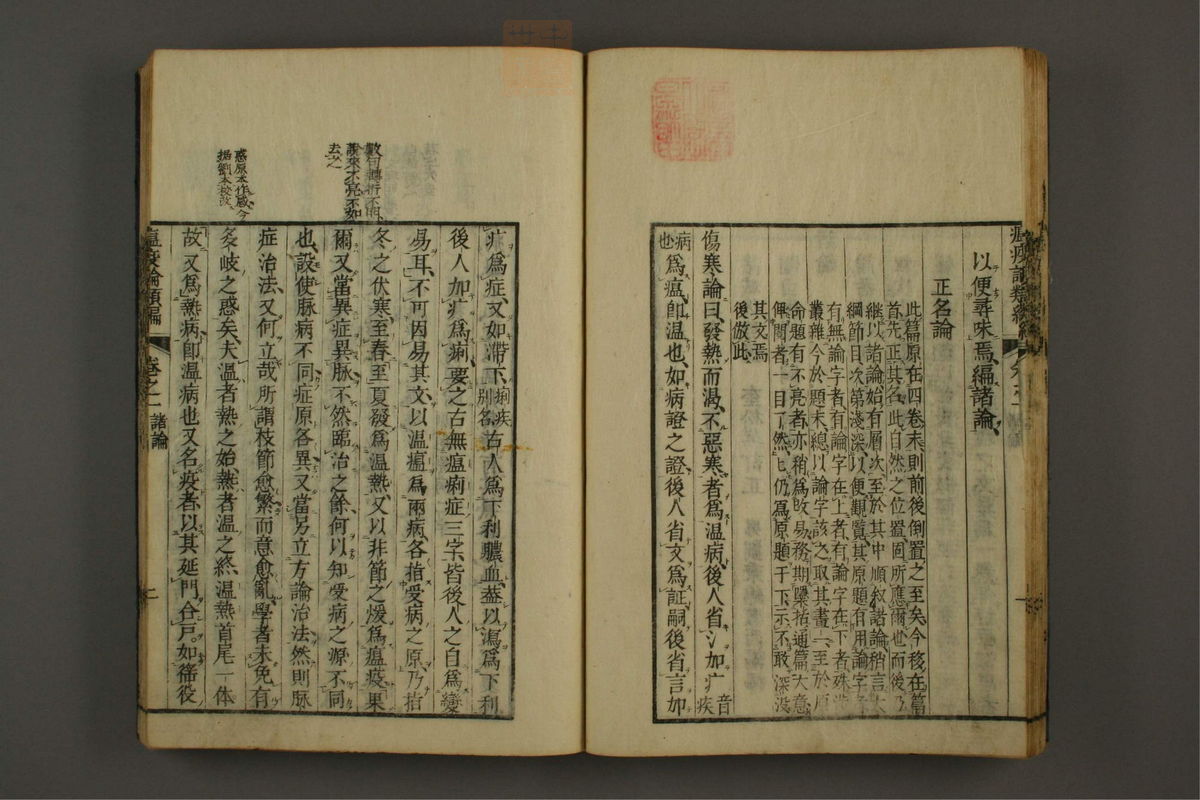 以便尋味焉、編諸論、
正名論
此篇原在四卷末則前後倒置之至矣今移在篇
首先正其名此自然之位置固所應爾也而後乃
繼以諸論始有層次至於其中順叙諸論稍言大
綱節目次第淺深以便觀覽其原題有用論字
有無論字者有論字在上者有論字在下者殊業
叢雜今於題末總以論字該之取其畫一至於原
命題有不亮者亦稍爲改易務期櫽括通篇大意
俾閱者一目了然也仍爲原題于下示不敢深没
其文焉
後倣此
傷寒論曰發熱而渴不惡寒者爲温病後人省氵加疒音疾
病也爲瘟、即温也如病證之證後人省文爲証嗣後省言加
疒爲症又如滯下痢疾別名古人爲下利膿血蓋以瀉爲下利
後人加疒爲痢要之古無瘟痢症三字皆後人之自爲變
易耳不可因易其文以温瘟爲兩病各指受病之原乃指
冬之伏寒至春至夏發爲温熱又以非節之煖爲瘟疫果
爾又當異症異脉不然臨治之餘何以知受病之源不同
也設使脉病不同症原各異又當另立方論治法然則脉
症治法又何立哉所謂枝節愈繁而意愈亂學者未免有
多岐之惑矣夫温者熱之始熱者温之終温熱首尾一體
故又爲熱病即温病也又名疫者以其延門合戸如徭役
數句轉折不明
說來不亮不如
去之
惑原本作感今
據劉本校改
瘟疫論類編 卷之一 諸論 二